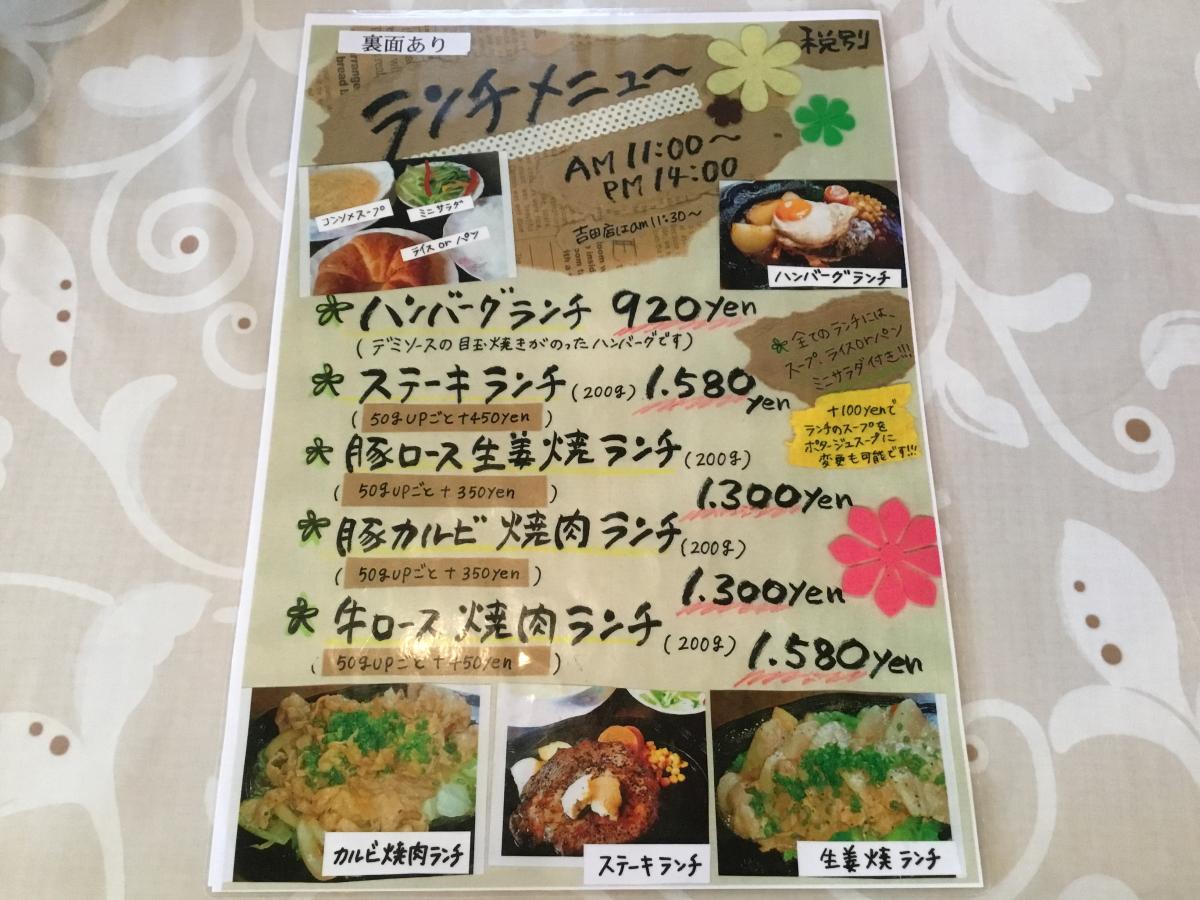 裏面あり
税別
ランチメニュ～
AM 11:00～
PM 14:00
吉田店はam11:30～
コンソメスープ
ミニサラダ
ライス or パン
ハンバーグランチ
ハンバーグランチ 920yen
(デミソースの目玉焼きがのったハンバーグです)
全てのランチには、
スープ、ライスorパン
ミニサラダ付き!!!
ステーキランチ(200g) 1.580yen
(50gUPごと+450yen)
+100yenで
ランチのスープを
ポタージュスープに
変更も可能です!!!
豚ロース生姜焼ランチ(200g)
(50gUPごと+350yen) 1.300yen
豚カルビ焼肉ランチ(200g)
(50gUPごと+350yen) 1.300yen
牛ロース焼肉ランチ(200g) 1.580yen
(50gUPごと+450yen)
カルビ焼肉ランチ
ステーキランチ
生姜焼ランチ